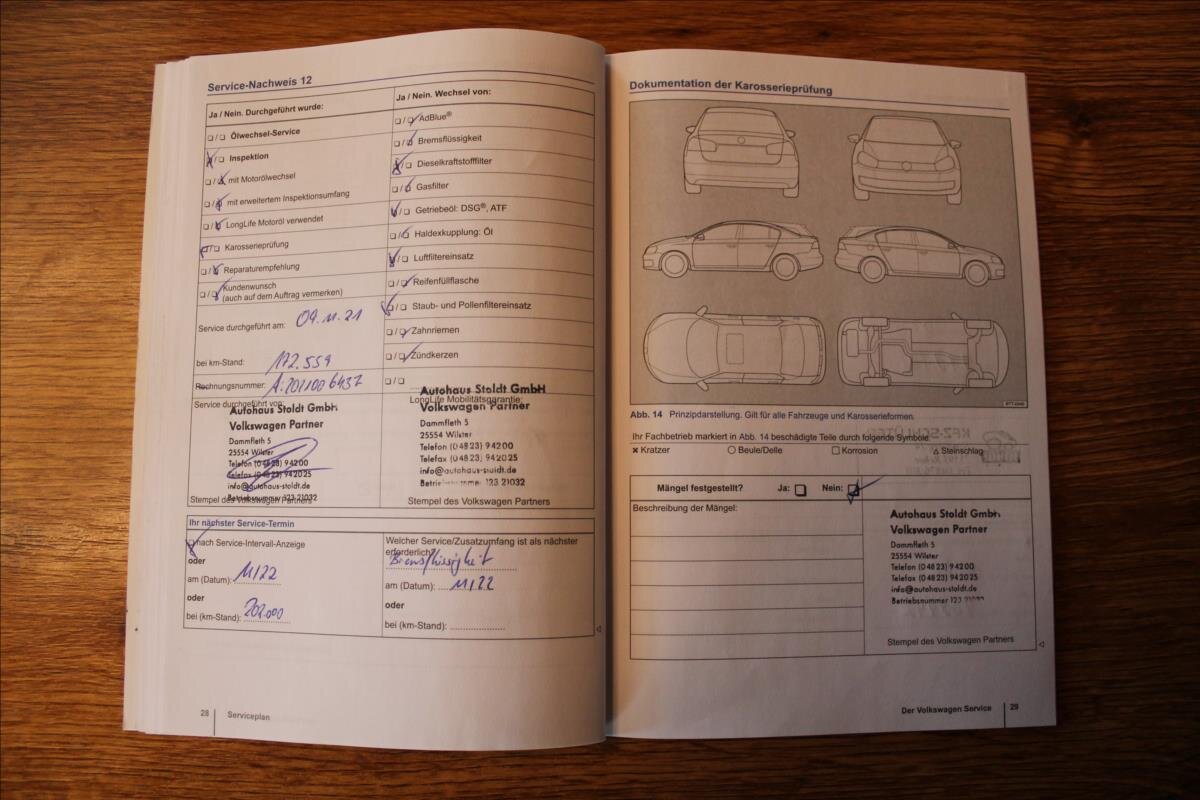 Service-Nachweis 12
Ja / Nein. Durchgeführt wurde:
❑ / ❑ Ölwechsel-Service
❑ / ❑ Inspektion
❑ / ❑ mit Motorölwechsel
❑ / ❑ mit erweitertem Inspektionsumfang
❑ / ❑ LongLife Motoröl verwendet
❑ / ❑ Karosserieprüfung
❑ / ❑ Reparaturempfehlung
❑ / ❑ Kundenwunsch
(auch auf dem Auftrag vermerken)
Service durchgeführt am: 09.11.21
bei km-Stand: 172.559
Rechnungsnummer:
Service durchgeführt von:
Autohaus Stoldt GmbH
Volkswagen Partner
Dammfleth 5
25554 Wilster
Telefon (04823) 94200
Telefax (04823) 942025
info@autohaus-stoldt.de
Betriebsnummer 123 21032
Stempel des Volkswagen Partners
Ja / Nein. Wechsel von:
❑ / ❑ AdBlue®
❑ / ❑ Bremsflüssigkeit
❑ / ❑ Dieselkraftstofffilter
❑ / ❑ Gasfilter
❑ / ❑ Getriebeöl: DSG®, ATF
❑ / ❑ Haldexkupplung: Öl
❑ / ❑ Luftfiltereinsatz
❑ / ❑ Reifenfüllflasche
❑ / ❑ Staub- und Pollenfiltereinsatz
❑ / ❑ Zahnriemen
❑ / ❑ Zündkerzen
❑ / ❑
LongLife Mobilitätsgarantie:
Autohaus Stoldt GmbH
Volkswagen Partner
Dammfleth 5
25554 Wilster
Telefon (04823) 94200
Telefax (04823) 942025
info@autohaus-stoldt.de
123 21032
Stempel des Volkswagen Partners
Ihr nächster Service-Termin
❑ nach Service-Intervall-Anzeige
oder
am (Datum): 11/22
oder
bei (km-Stand): 202.000
Welcher Service/Zusatzumfang ist als nächster
erforderlich?
Bremsflüssigkeit
am (Datum): 11/22
oder
bei (km-Stand):
28 Serviceplan
Dokumentation der Karosserieprüfung
Abb. 14 Prinzipdarstellung. Gilt für alle Fahrzeuge und Karosserieformen.
Ihr Fachbetrieb markiert in Abb. 14 beschädigte Teile durch folgende Symbole:
✖ Kratzer ○ Beule/Delle □ Korrosion △ Steinschlag
Mängel festgestellt? Ja: ❑ Nein: ❑
Beschreibung der Mängel:
Autohaus Stoldt GmbH
Volkswagen Partner
Dammfleth 5
25554 Wilster
Telefon (04823) 94200
Telefax (04823) 942025
info@autohaus-stoldt.de
Betriebsnummer 123 21032
Stempel des Volkswagen Partners
Der Volkswagen Service 29